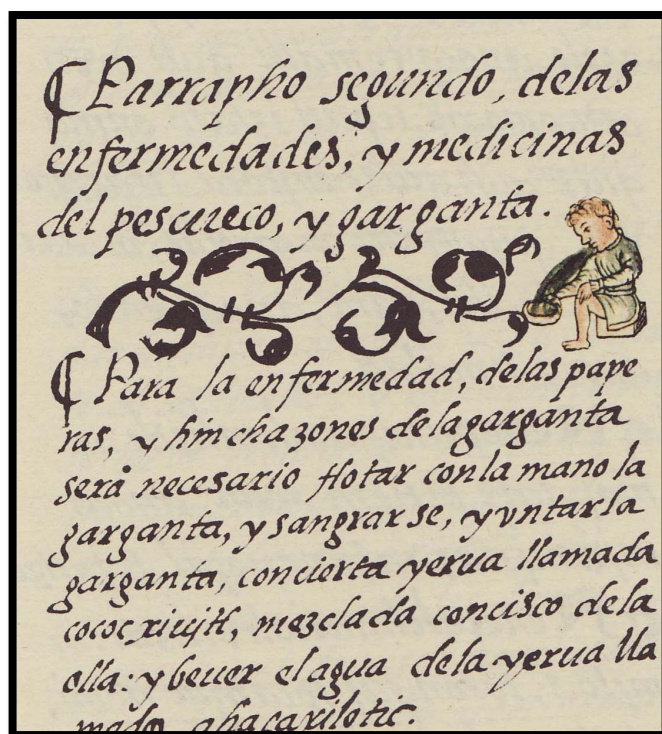 ¶ Parrapho segundo, delas
enfermedades, y medicinas
del pescueço, y garganta.
¶ Para la enfermedad, delas pape
ras, y hinchazones delagarganta
sera necesario flotar conla mano la
garganta, y sangrarse, y vntarla
garganta, concierta yerua llamada
cococ xiujtl, mezclada concisco dela
olla: y beuer elagua dela yerua lla
mada ahacaxilotic.